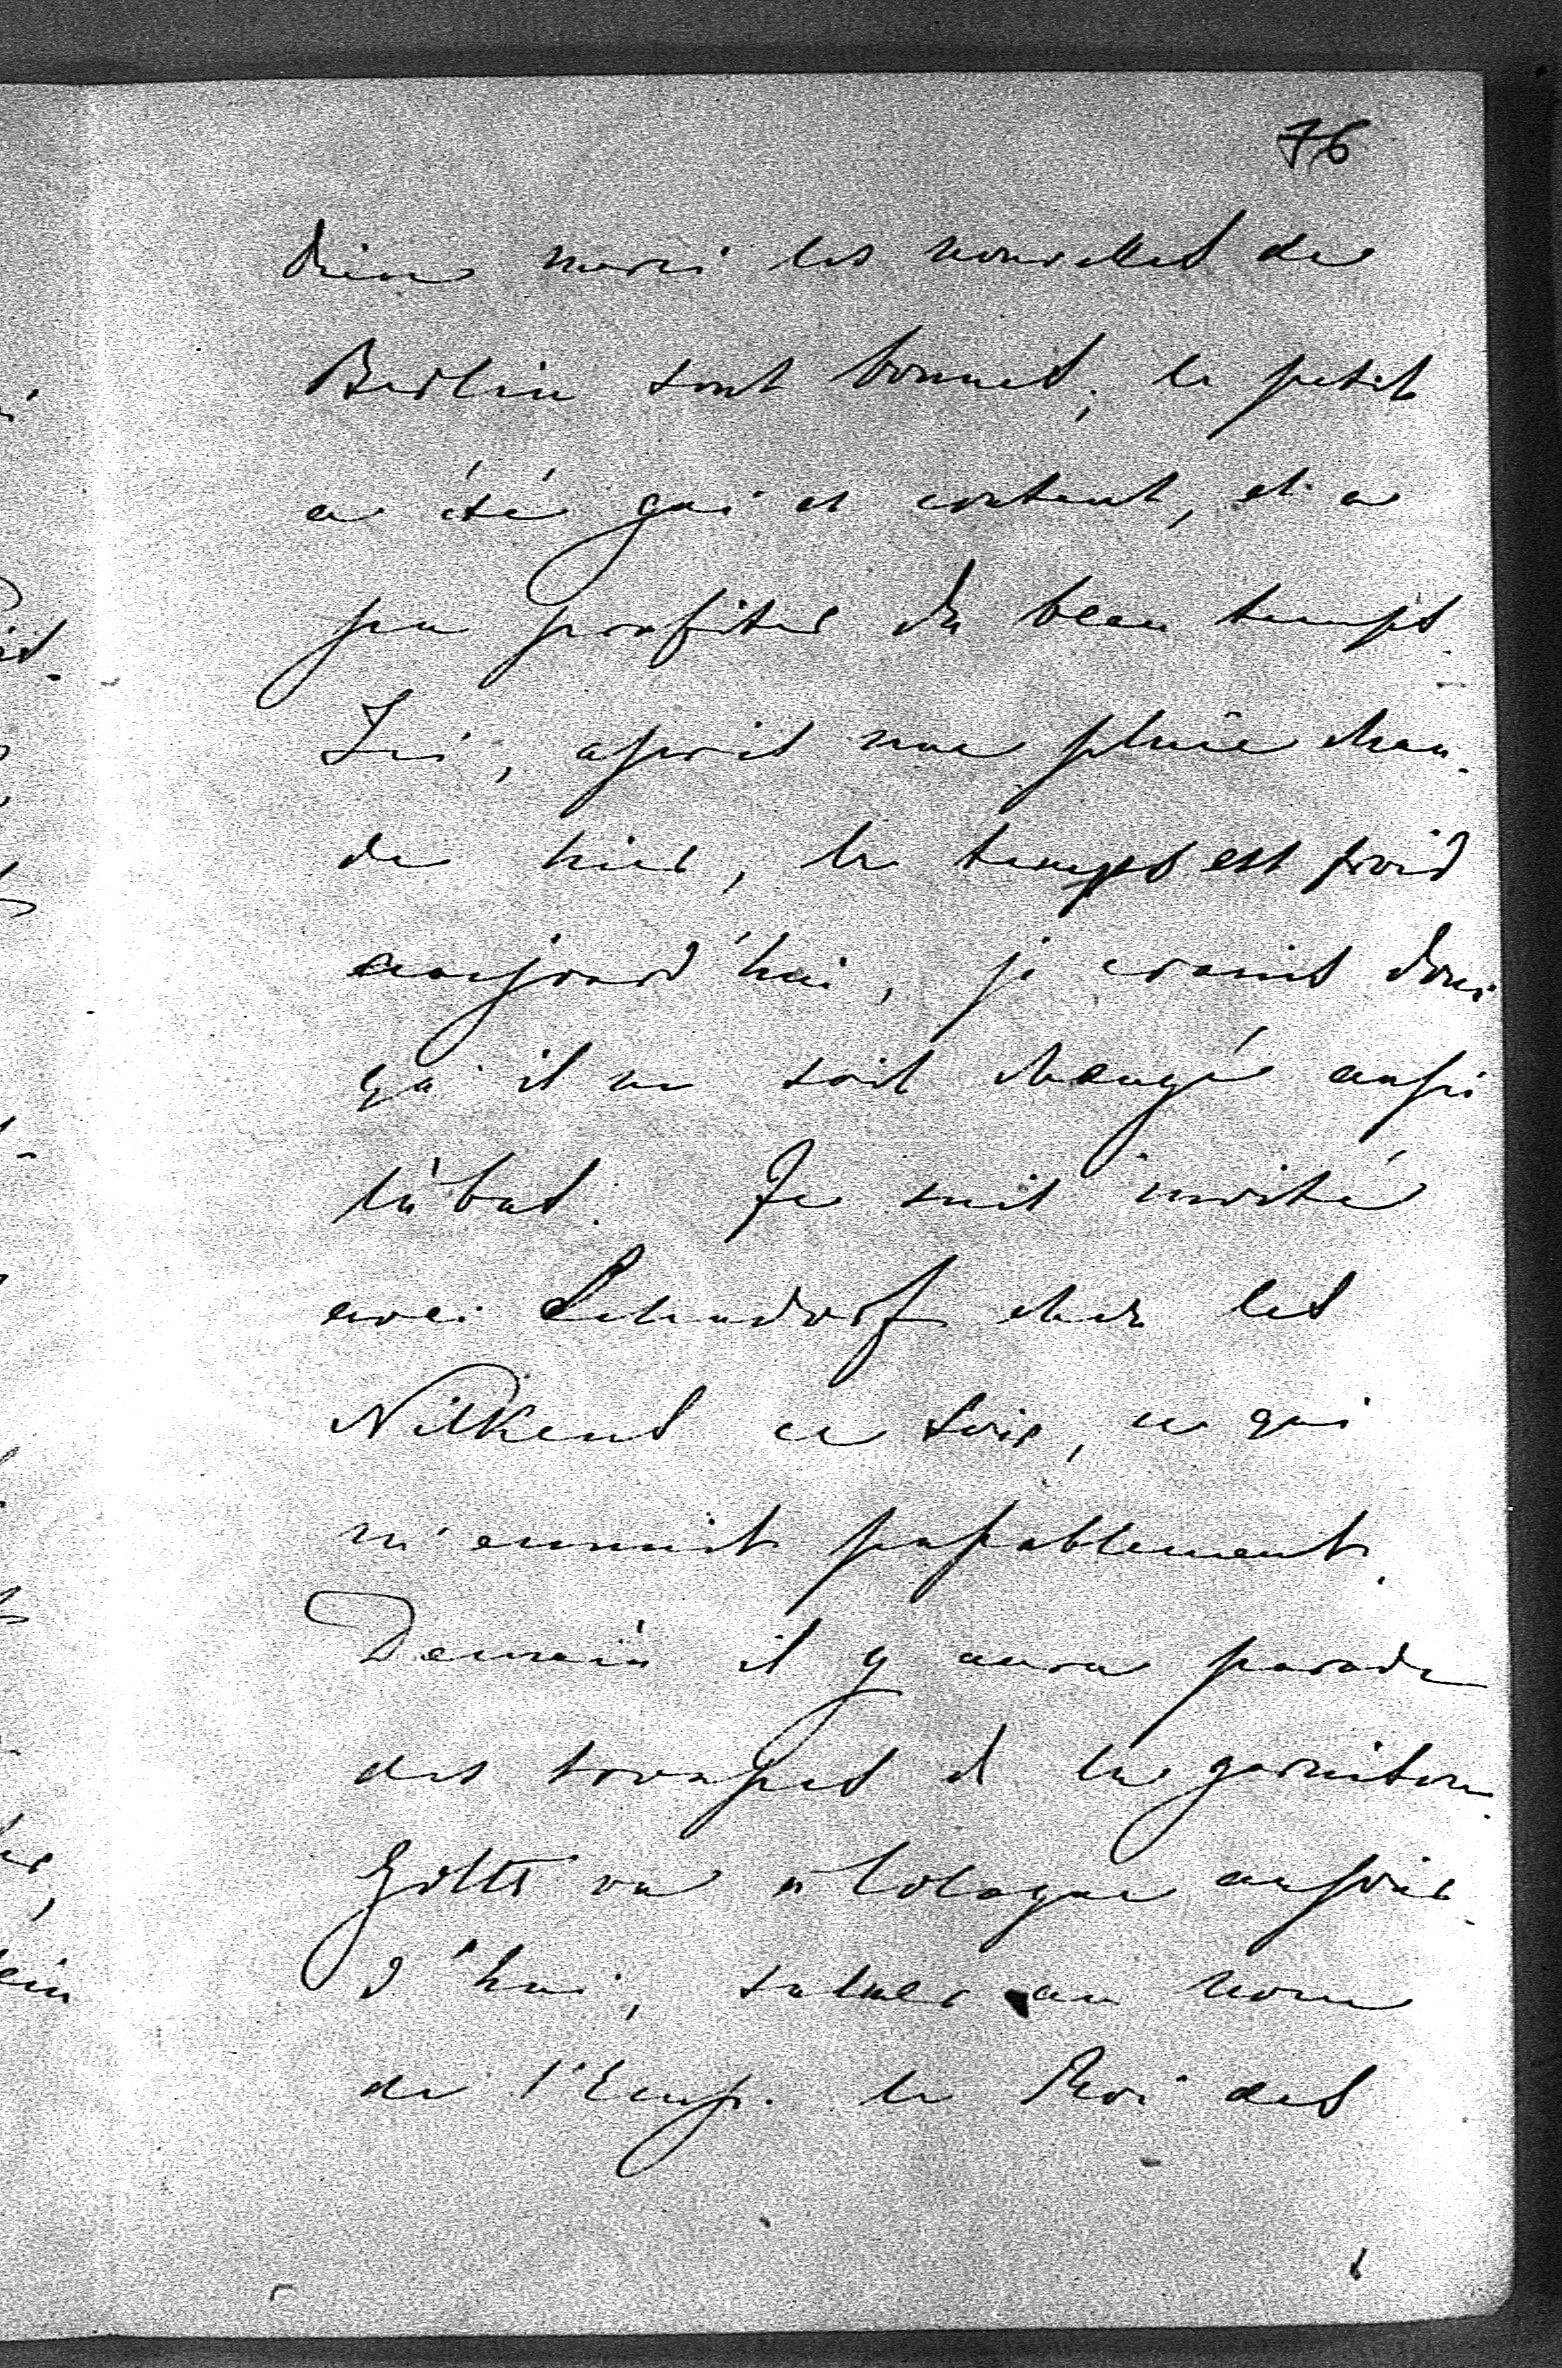 76
Dieu merci les nouvelles de
Berlin sont bonnes, le petit
a été gai et content, et a
pu profiter du beau temps.
Ici, après une pluie chau-
de hier, le temps est froid
aujourd'hui, je crains donc
qu'il ne soit changé aussi
là bas. Je suis invité
avec Lehndorf chez les
ce soir, ce qui
m'ennuit passablement.
Demain il y aura parade
des troupes d la garnison.
Goltz va à Cologne aujour-
d'hui, saluer au nom
de l'Emp. le Roi des